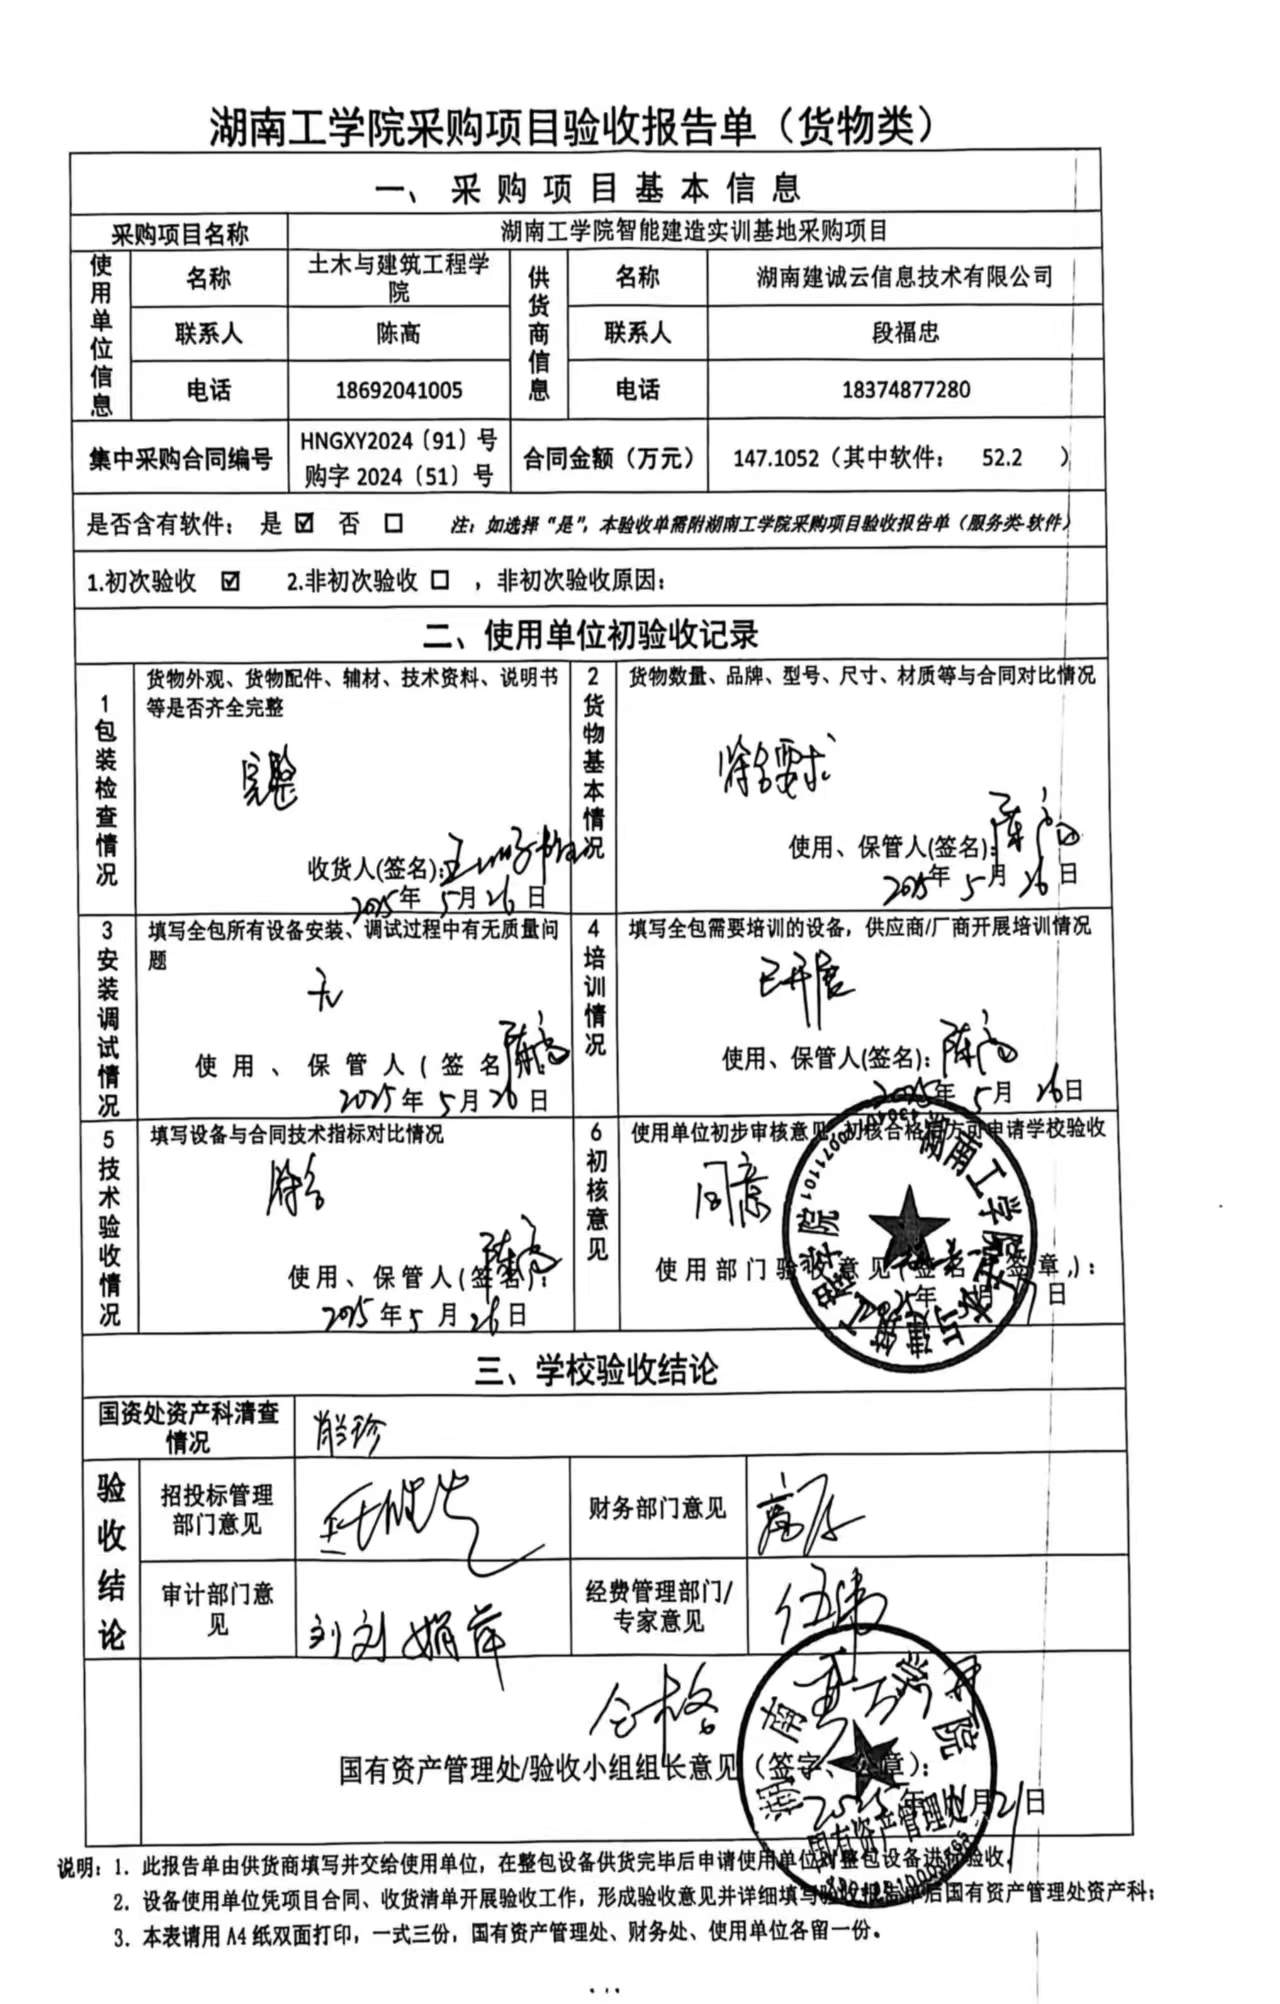 湖南工学院采购项目验收报告单（货物类）
一、采购项目基本信息
采购项目名称 湖南工学院智能建造实训基地采购项目
使用单位信息 名称 土木与建筑工程学院 供货商信息 名称 湖南建诚云信息技术有限公司
联系人 陈高 联系人 段福忠
电话 18692041005 电话 18374877280
集中采购合同编号 HNGXY2024〔91〕号 购字2024〔51〕号 合同金额（万元） 147.1052（其中软件： 52.2 ）
是否含有软件： 是 ☑ 否 □ 注：如选择“是”，本验收单需附湖南工学院采购项目验收报告单（服务类-软件）
1.初次验收 ☑ 2.非初次验收 □ ，非初次验收原因：
二、使用单位初验收记录
1 包装检查情况
货物外观、货物配件、辅材、技术资料、说明书
等是否齐全完整
完整
收货人(签名):
2025年 5月 26日
2 货物基本情况
货物数量、品牌、型号、尺寸、材质等与合同对比情况
符合要求
使用、保管人(签名): 陈高
2025年 5月 26日
3 安装调试情况
填写全包所有设备安装、调试过程中有无质量问
题
无
使用、保管人(签名 陈高
2025年 5月 26日
4 培训情况
填写全包需要培训的设备，供应商/厂商开展培训情况
已开展
使用、保管人(签名): 陈高
2025年 5月 26日
5 技术验收情况
填写设备与合同技术指标对比情况
符合
使用、保管人(签名): 陈高
2025年 5月 26日
6 初核意见
使用单位初步审核意见，初核合格后方可申请学校验收
同意
使用部门验收意见(签名 签章,):
2025年 月 日
湖南工学院土木与建筑工程学院
三、学校验收结论
国资处资产科清查
情况
肖珍
验收结论
招投标管理
部门意见
财务部门意见
审计部门意
见
刘 刘娟萍
经费管理部门/
专家意见
伍
合格
国有资产管理处/验收小组组长意见（签字、公章）:
2025年 月21日
湖南工学院
国有资产管理处
说明：1. 此报告单由供货商填写并交给使用单位，在整包设备供货完毕后申请使用单位对整包设备进行验收，
2. 设备使用单位凭项目合同、收货清单开展验收工作，形成验收意见并详细填写验收报告单后国有资产管理处资产科；
3. 本表请用A4纸双面打印，一式三份，国有资产管理处、财务处、使用单位各留一份。